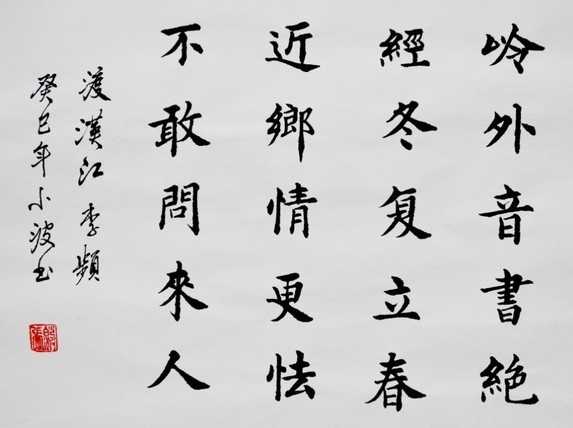 岭外音書絶
經冬复立春
近鄉情更怯
不敢問來人
渡漢江 李頻
癸巳年小波书